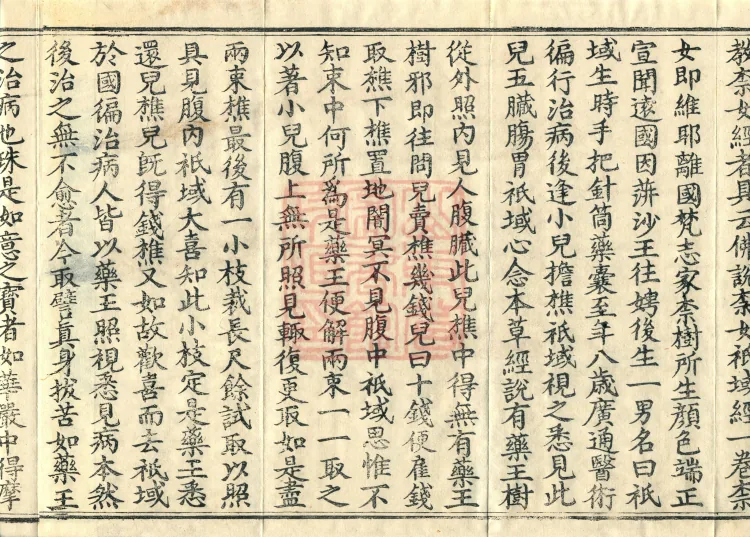 教柰女經者具云佛說柰女祇域經一卷柰
女即維耶離國梵志家柰樹所生顔色端正
宣聞遠國因蓱沙王往娉後生一男名曰祇
域生時手把針筒藥囊至年八歲廣通醫術
徧行治病後逢小兒擔樵祇域視之悉見此
兒五臟腸胃祇域心念本草經說有藥王樹
從外照內見人腹臟此兒樵中得無有藥王
樹邪即往問兒賣樵幾錢兒曰十錢便雇錢
取樵下樵置地闇冥不見腹中祇域思惟不
知束中何所為是藥王便解兩束一一取之
以著小兒腹上無所照見輙復更取如是盡
兩束樵最後有一小枝裁長尺餘試取以照
具見腹內祇域大喜知此小枝定是藥王悉
還兒樵兒旣得錢樵又如故歡喜而去祇域
於國徧治病人皆以藥王照視悉見病本然
後治之無不愈者今取譬真身拔苦如藥王
之治病也珠是如意之寶者如華嚴中得摩